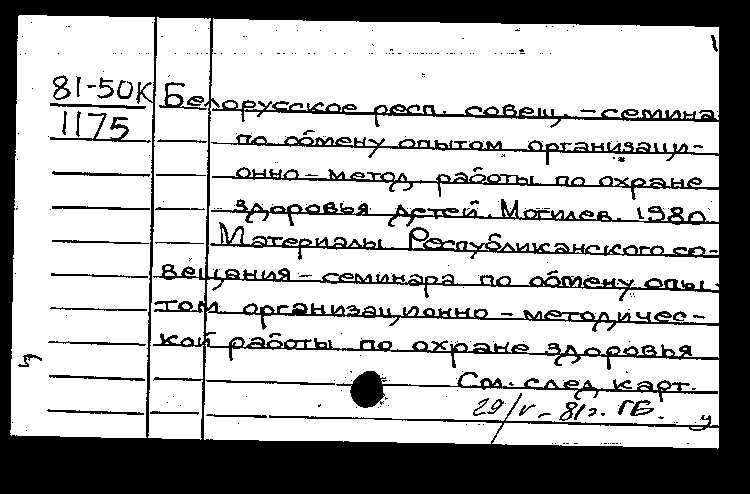 1
81-50К Белорусское респ. совещ. – семина
1175 по обмену опытом организаци-
онно – метод. работы по охране
здоровья детей. Могилев. 1980.
Материалы Республиканского со-
вещания – семинара по обмену опы-
том организационно – методичес-
кой работы по охране здоровья
См. след. карт.
29/V – 81г. ГБ. у